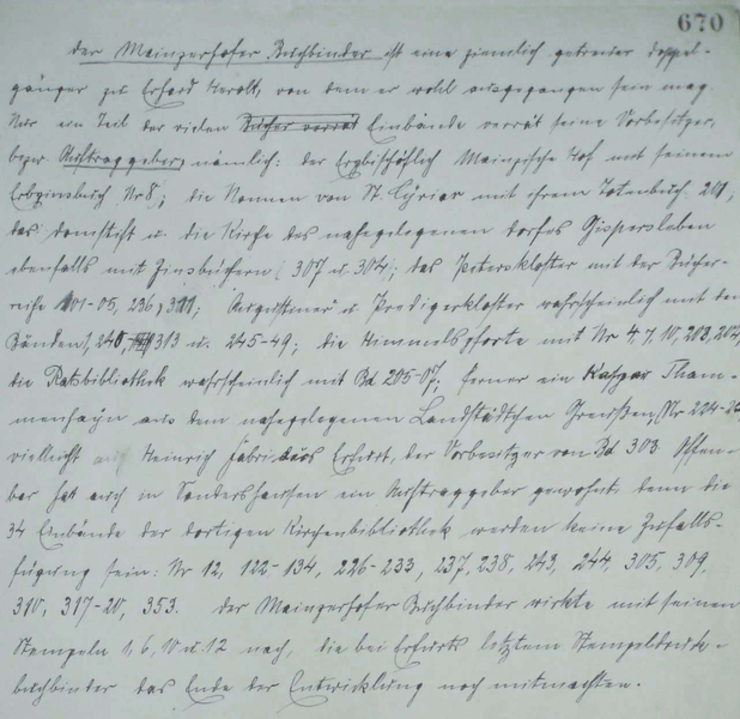 670
Der Mainzerhofer Buchbinder ist eine ziemlich getreuer Doppel-
gänger zu Erhard Herolt, von dem er wohl ausgegangen sein mag.
Nur ein Teil der vielen Bücher verrät Einbände verrät seine Vorbesitzer,
bezw. Auftraggeber, nämlich: der Erzbischöflich Mainzische Hof mit seinem
Erbzinsbuch Nr 8; die Nonnen von St. Cyriax mit ihrem Totenbuch 201;
das Domstift u. die Kirche des nahegelegenen Dorfes Gispersleben
ebenfalls mit Zinsbüchern (307 u. 304); das Peterskloster mit der Bücher-
reihe 101-05, 236, 311; Augustiner u. Predigerkloster wahrscheinlich mit den
Bänden 1, 240, 313 u. 245-49; die Himmelspforte mit Nr 4, 7, 10, 203, 204,
die Ratsbibliothek wahrscheinlich mit Bd 205-07; ferner ein Kaspar Tham-
menhayn aus dem nahegelegenen Landstädtchen Greußen, (Nr 224-
vielleicht Heinrich Fabri Erfurt, der Vorbesitzer von Bd 303. Offen-
bar hat auch in Sondershausen ein Auftraggeber gewohnt, denn die
34 Einbände der dortigen Kirchenbibliothek werden keine Zufalls-
fügung sein: Nr 12, 122-134, 226-233, 237, 238, 243, 244, 305, 309,
310, 317-20, 353. Der Mainzerhofer Buchbinder wirkte mit seinen
Stempeln 1, 6, 10 u. 12 nach, die bei Erfurts letztem Stempeldruck-
buchbinder das Ende der Entwicklung noch mitmachten.